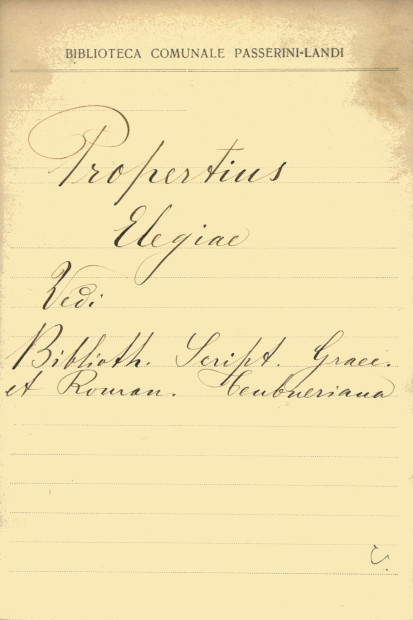 BIBLIOTECA COMUNALE PASSERINI-LANDI
Propertius
Elegiae
Vedi
Biblioth. Script. Graec.
et Roman. Teubneriana